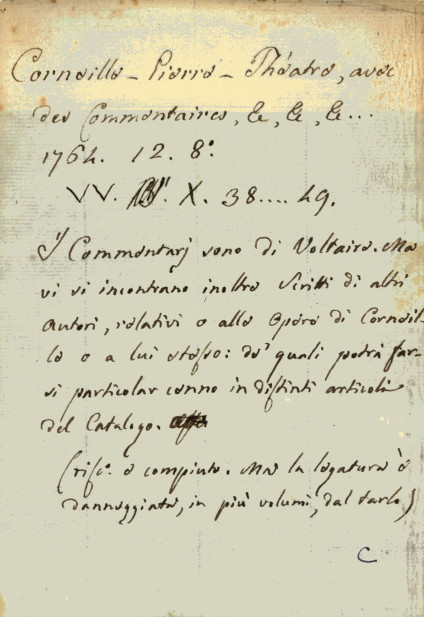 Corneille - Pierre - Théatre, avec
des Commentaires, &c, &c, &c...
1764. 12. 8.º
VV. X. 38....49.
I Commentarj sono di Voltaire. Ma
vi si incontrano inoltre Scritti di altri
Autori, relativi o alle Opere di Corneil-
le o a lui stesso: de' quali potrà far-
si particolar cenno in distinti articoli
del Catalogo.
e compiuto. Ma la legatura è
danneggiata, in più volumi, dal tarlo)
C